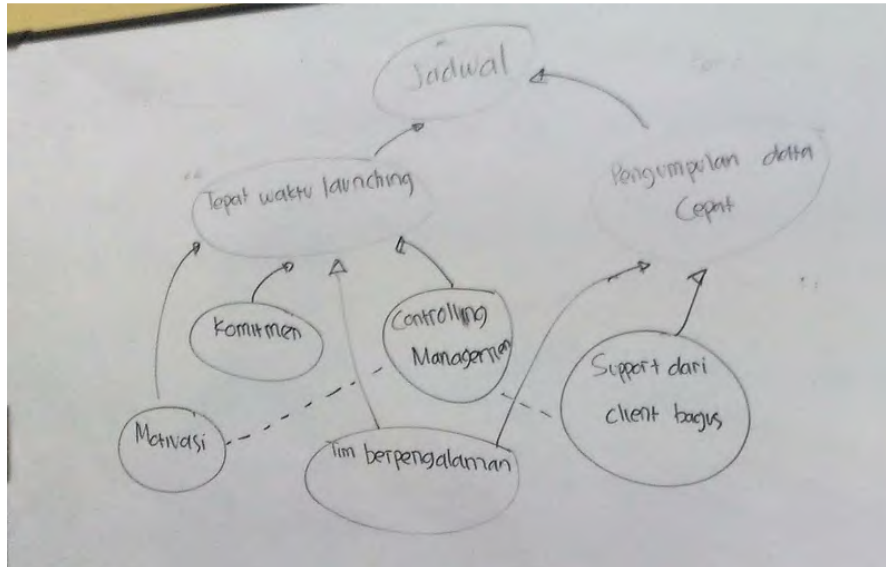 Jadwal
Tepat waktu launching
Pengumpulan data
Cepat
Komitmen
Controlling
Managemen
Support dari
client bagus
Motivasi
Tim berpengalaman